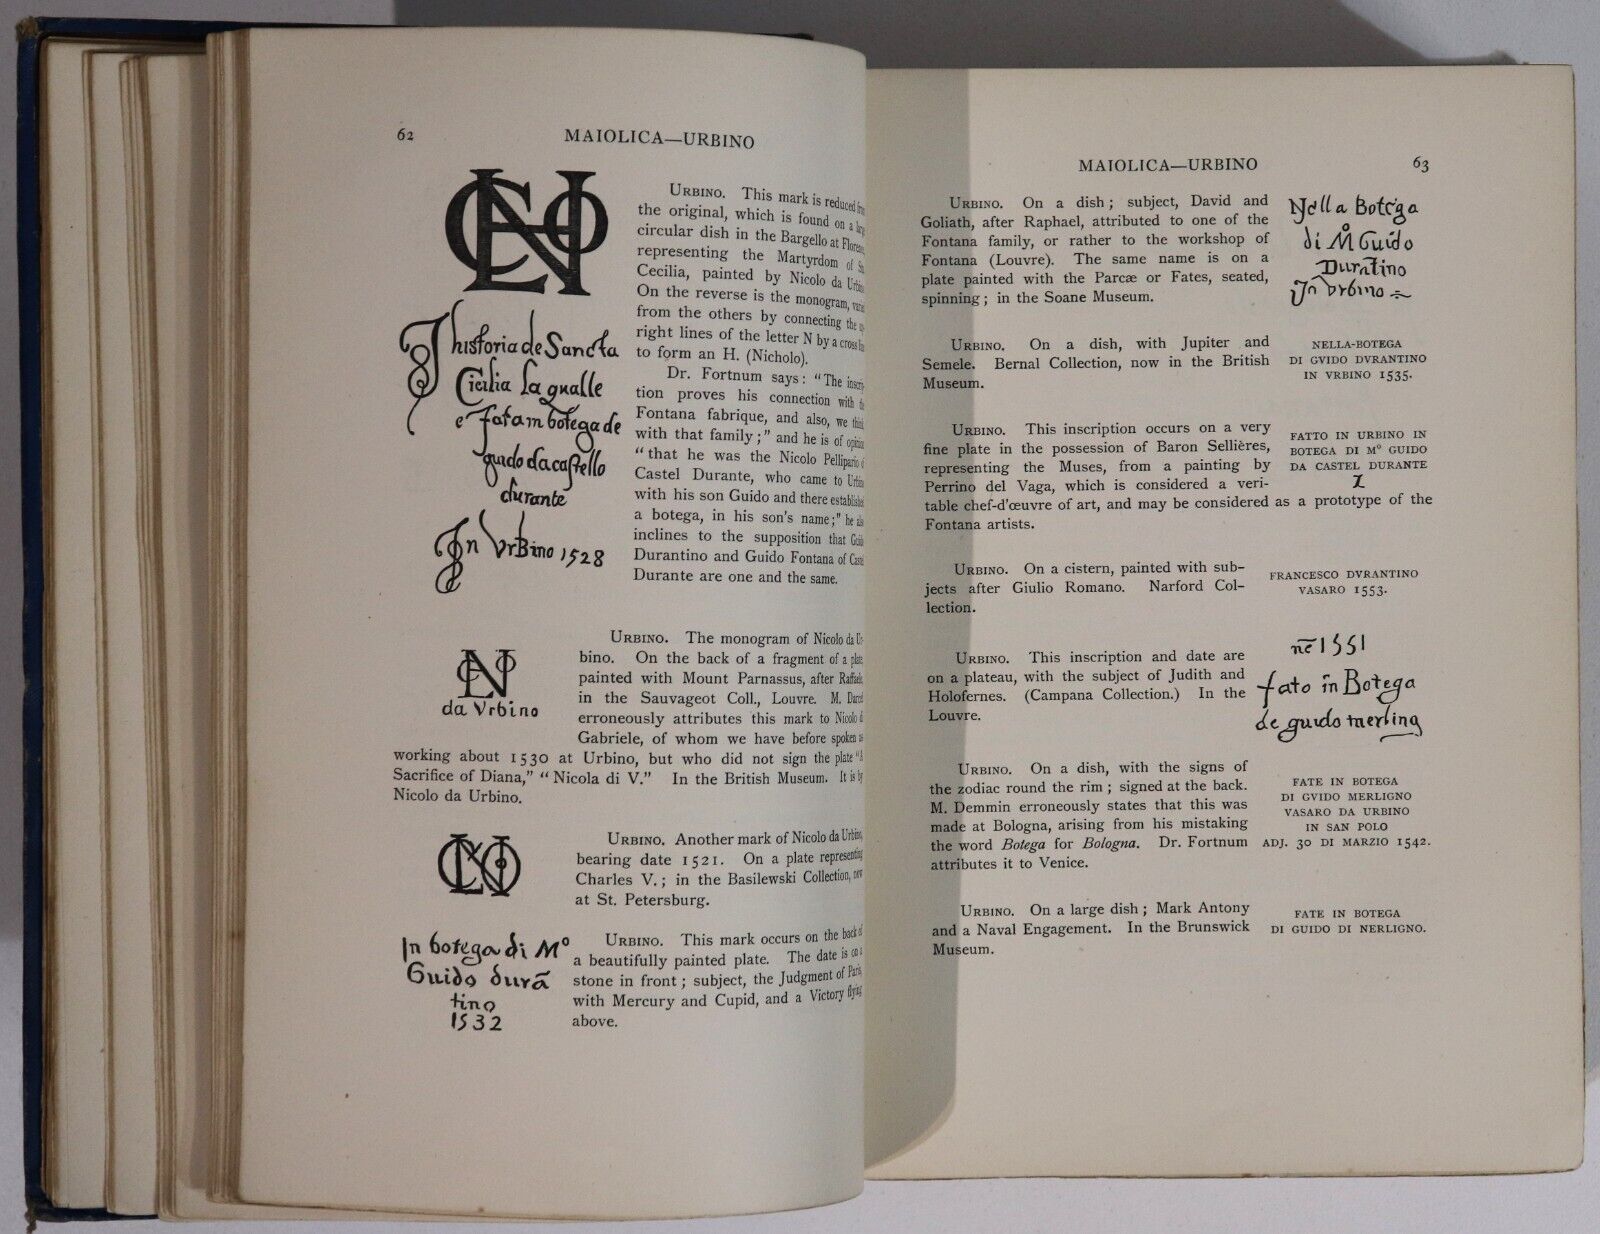 62
MAIOLICA—URBINO
URBINO. This mark is reduced from
the original, which is found on a large
circular dish in the Bargello at Florence,
representing the Martyrdom of Sta.
Cecilia, painted by Nicolo da Urbino
On the reverse is the monogram, varied
from the others by connecting the up-
right lines of the letter N by a cross line
to form an H. (Nicholo).
Dr. Fortnum says: "The inscrip-
tion proves his connection with the
Fontana fabrique, and also, we think
with that family;" and he is of opinion
"that he was the Nicolo Pellipario of
Castel Durante, who came to Urbino
with his son Guido and there established
a botega, in his son's name;" he also
inclines to the supposition that Guido
Durantino and Guido Fontana of Castel
Durante are one and the same.
historia de Sancta
Cicilia la qualle
e fata in botega de
guido da castello
durante
In Urbino 1528
da Vrbino
URBINO. The monogram of Nicolo da Ur-
bino. On the back of a fragment of a plate
painted with Mount Parnassus, after Raffaele
in the Sauvageot Coll., Louvre. M. Darcel
erroneously attributes this mark to Nicolo di
Gabriele, of whom we have before spoken as
working about 1530 at Urbino, but who did not sign the plate "A
Sacrifice of Diana," "Nicola di V." In the British Museum. It is by
Nicolo da Urbino.
URBINO. Another mark of Nicolo da Urbino,
bearing date 1521. On a plate representing
Charles V.; in the Basilewski Collection, now
at St. Petersburg.
In botega di Mo
Guido durā
tino
1532
URBINO. This mark occurs on the back of
a beautifully painted plate. The date is on a
stone in front; subject, the Judgment of Paris,
with Mercury and Cupid, and a Victory flying
above.
MAIOLICA—URBINO
63
URBINO. On a dish; subject, David and
Goliath, after Raphael, attributed to one of the
Fontana family, or rather to the workshop of
Fontana (Louvre). The same name is on a
plate painted with the Parcæ or Fates, seated,
spinning; in the Soane Museum.
Nella Botega
di Mo Guido
Durātino
In Vrbino
URBINO. On a dish, with Jupiter and
Semele. Bernal Collection, now in the British
Museum.
NELLA-BOTEGA
DI GVIDO DVRANTINO
IN VRBINO 1535.
URBINO. This inscription occurs on a very
fine plate in the possession of Baron Sellières,
representing the Muses, from a painting by
Perrino del Vaga, which is considered a veri-
table chef-d'œuvre of art, and may be considered as a prototype of the
Fontana artists.
FATTO IN URBINO IN
BOTEGA DI Mo GUIDO
DA CASTEL DURANTE
URBINO. On a cistern, painted with sub-
jects after Giulio Romano. Narford Col-
lection.
FRANCESCO DVRANTINO
VASARO 1553.
URBINO. This inscription and date are
on a plateau, with the subject of Judith and
Holofernes. (Campana Collection.) In the
Louvre.
nē 1551
fato in Botega
de guido merling
URBINO. On a dish, with the signs of
the zodiac round the rim; signed at the back.
M. Demmin erroneously states that this was
made at Bologna, arising from his mistaking
the word Botega for Bologna. Dr. Fortnum
attributes it to Venice.
FATE IN BOTEGA
DI GVIDO MERLIGNO
VASARO DA URBINO
IN SAN POLO
ADJ. 30 DI MARZIO 1542.
URBINO. On a large dish; Mark Antony
and a Naval Engagement. In the Brunswick
Museum.
FATE IN BOTEGA
DI GUIDO DI NERLIGNO.